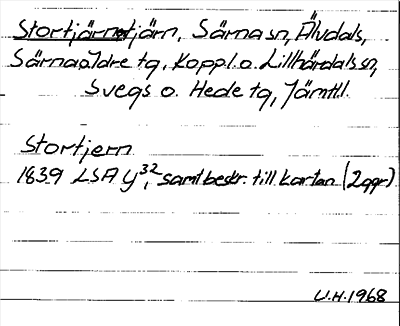 Stortjärntjärn, Särna sn, Älvdals,
Särna o. Idre tg, Kopp.l. o. Lillhärdals sn,
Svegs o. Hede tg, Jämtl.l.
Stortjern
1839 LSA Y 32, samt beskr. till kartan (2 ggr)
U.H. 1968